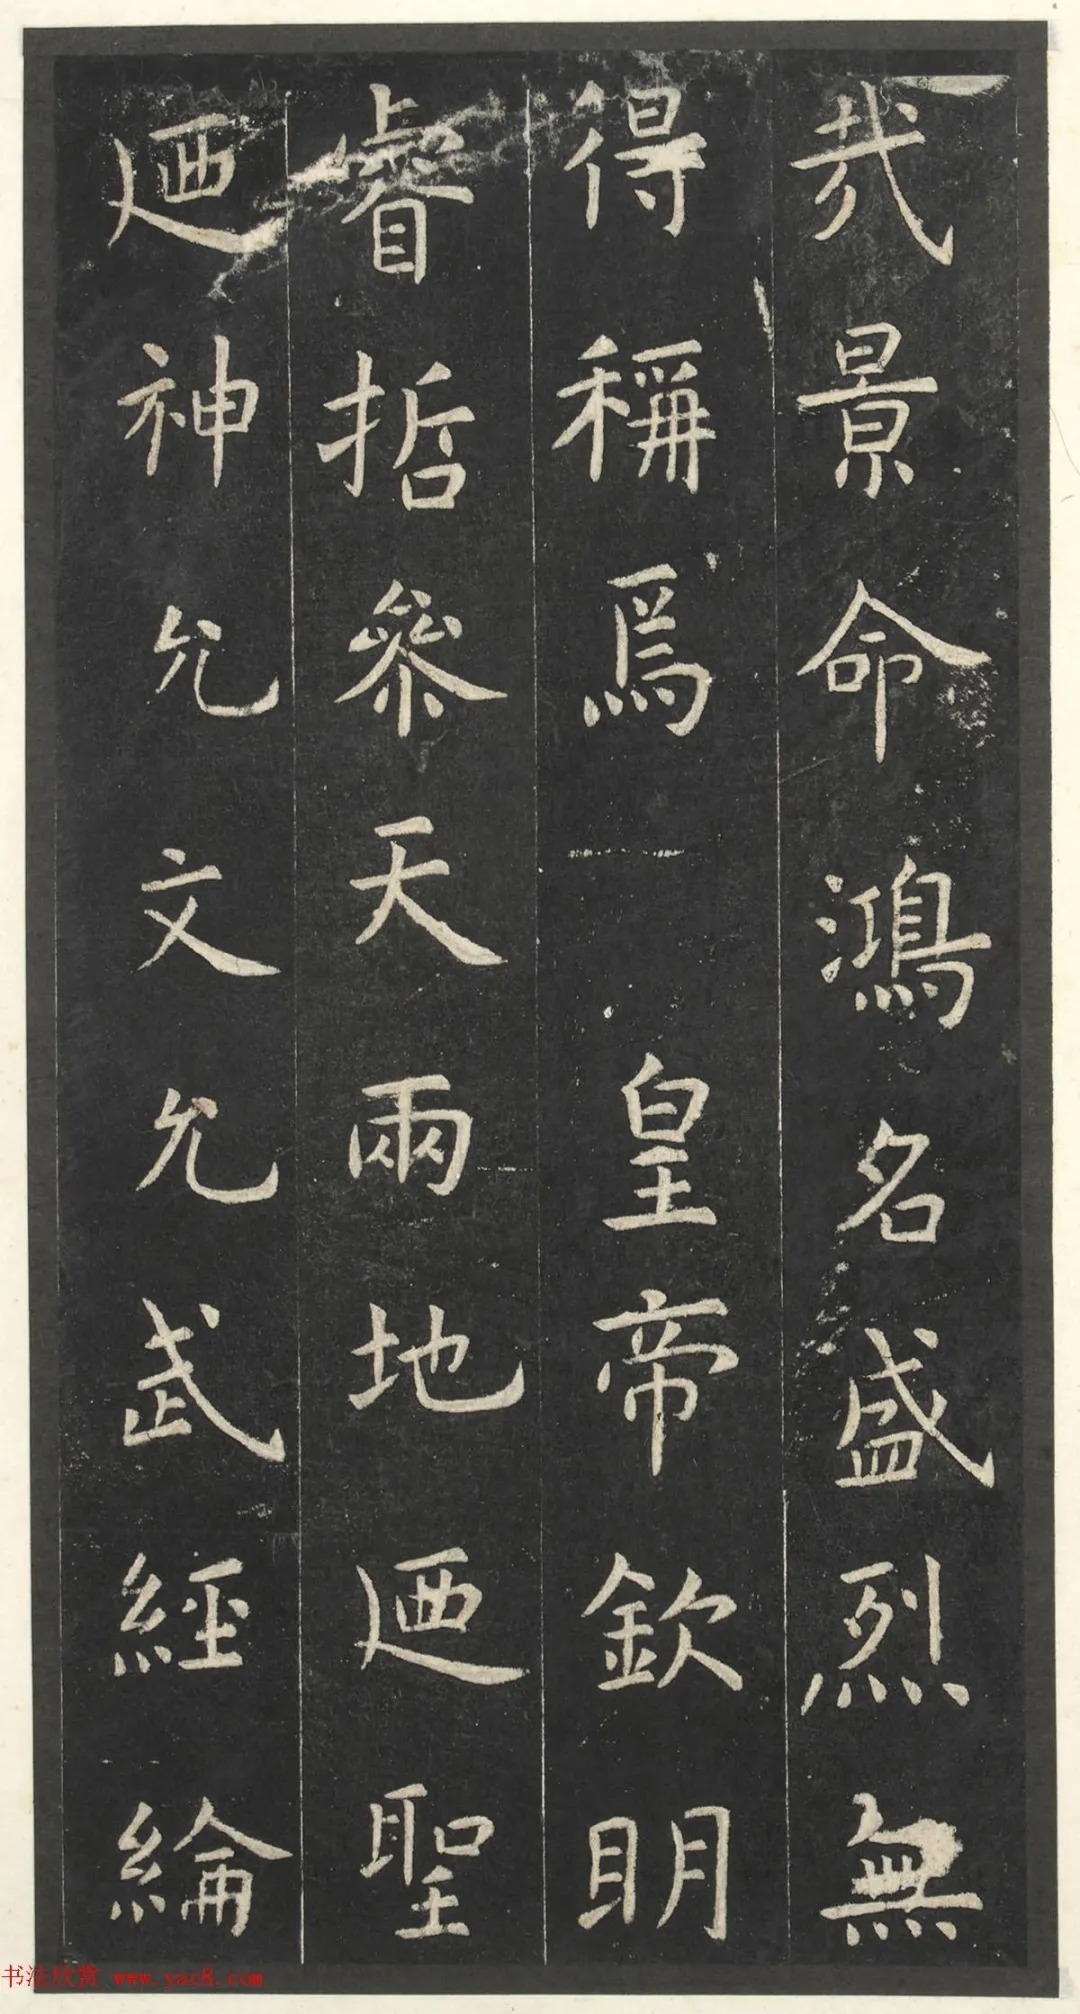 哉景命鴻名盛烈無
得稱焉　皇帝欽明
睿哲參天兩地迺聖
迺神允文允武經綸
书法欣赏 www.yac8.com